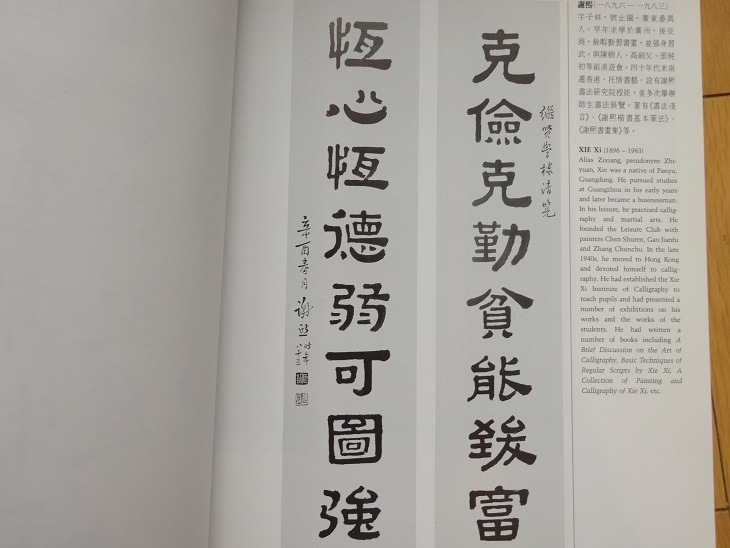 克儉克勤貧能致富
繼賢學棣清覽
恆心恆德弱可圖強
辛酉春月 謝熙
謝熙(一八九六——一九八三)
字子祥，號止園，廣東番禺
人。早年求學於廣州，後從
商，餘暇勤習書畫，並強身習
武。與陳樹人、高劍父、張純
初等組清遊會。四十年代末南
遷香港，托情書藝，設有謝熙
書法研究院授徒，並多次舉辦
師生書法展覽。著有《書法淺
言》、《謝熙楷書基本筆法》、
《謝熙書畫集》等。
XIE Xi (1896 – 1983)
Alias Zixiang, pseudonym Zhi-
yuan, Xie was a native of Panyu,
Guangdong. He pursued studies
at Guangzhou in his early years
and later became a businessman.
In his leisure, he practised callig-
raphy and martial arts. He
founded the Leisure Club with
painters Chen Shuren, Gao Jianfu
and Zhang Chunchu. In the late
1940s, he moved to Hong Kong
and devoted himself to callig-
raphy. He had established the Xie
Xi Institute of Calligraphy to
teach pupils and had presented a
number of exhibitions on his
works and the works of the
students. He had written a
number of books including A
Brief Discussion on the Art of
Calligraphy, Basic Techniques of
Regular Scripts by Xie Xi, A
Collection of Painting and
Calligraphy of Xie Xi, etc.